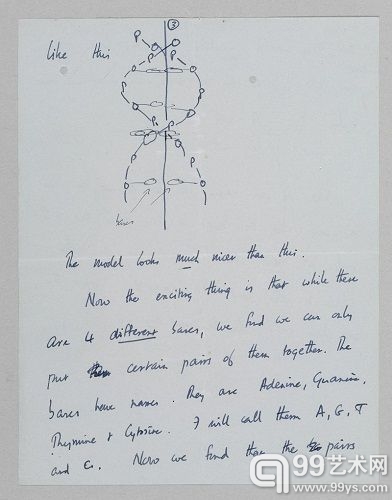 ③
Like this
P
P P
P P
P P
P P
bases
The model looks much nicer than this.
Now the exciting thing is that while there
are 4 different bases, we find we can only
put certain pairs of them together. The
bases have names. They are Adenine, Guanine,
Thymine & Cytosine. I will call them A, G, T
and C. Now we find that the pairs
99艺术网
www.99ys.com